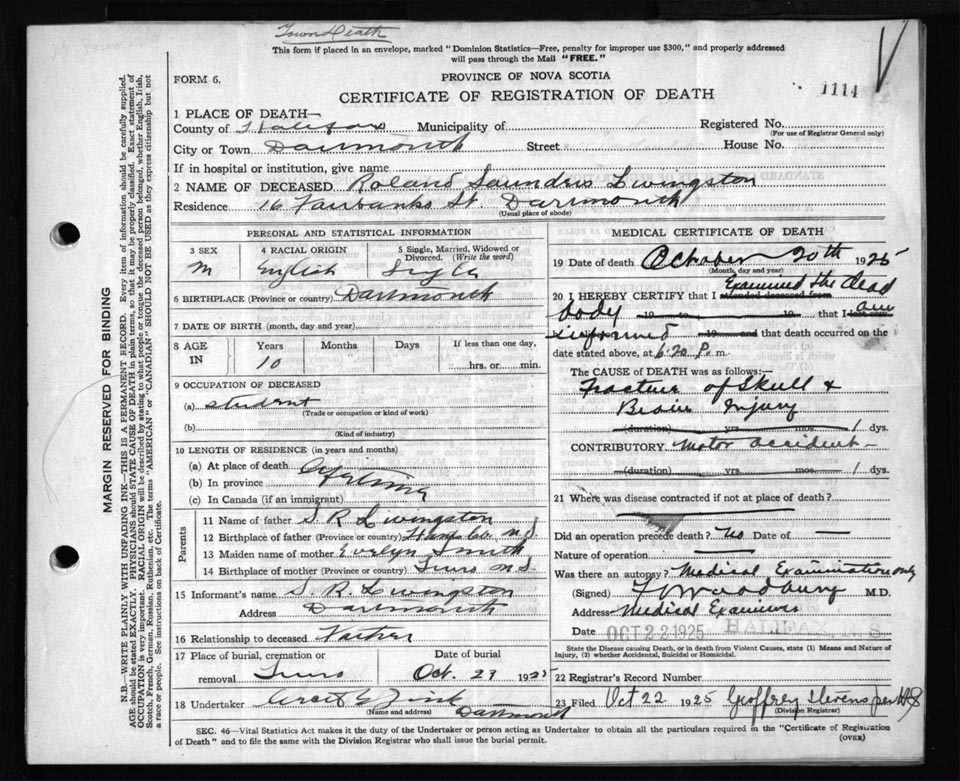 Town Death
This form if placed in an envelope, marked "Dominion Statistics—Free, penalty for improper use $300," and properly addressed
will pass through the Mail "FREE."
FORM 6.
PROVINCE OF NOVA SCOTIA
CERTIFICATE OF REGISTRATION OF DEATH
1114
1 PLACE OF DEATH—
County of Halifax Municipality of
Registered No.
(For use of Registrar General only)
City or Town Dartmouth Street House No.
If in hospital or institution, give name
2 NAME OF DECEASED Roland Saunders Livingston
Residence 16 Fairbanks St. Dartmouth
(Usual place of abode)
PERSONAL AND STATISTICAL INFORMATION
3 SEX
M
4 RACIAL ORIGIN
English
5 Single, Married, Widowed or
Divorced. (Write the word)
Single
6 BIRTHPLACE (Province or country) Dartmouth
7 DATE OF BIRTH (month, day and year)
8 AGE IN
Years Months Days If less than one day,
10
hrs. or min.
9 OCCUPATION OF DECEASED
(a) student
(Trade or occupation or kind of work)
(b)
(Kind of industry)
10 LENGTH OF RESIDENCE (in years and months)
(a) At place of death
(b) In province Lifetime
(c) In Canada (if an immigrant)
Parents
11 Name of father S. R. Livingston
12 Birthplace of father (Province or country) Hants Co. N.S.
13 Maiden name of mother Evelyn Smith
14 Birthplace of mother (Province or country) Truro N.S.
15 Informant's name S. R. Livingston
Address Dartmouth
16 Relationship to deceased Father
17 Place of burial, cremation or
removal Truro
Date of burial
Oct. 23 1925
18 Undertaker
(Name and address) Dartmouth
MEDICAL CERTIFICATE OF DEATH
19 Date of death October 20th 1925
(Month, day and year)
20 I HEREBY CERTIFY that I attended deceased from Examined the dead
body 19 19 that I last saw am
informed 19 and that death occurred on the
date stated above, at 6.20 P. m.
The CAUSE OF DEATH was as follows:—
Fracture of Skull &
Brain Injury
(duration) yrs. mos. 1 dys.
CONTRIBUTORY Motor accident—
(duration) yrs. mos. 1 dys.
21 Where was disease contracted if not at place of death?
Did an operation precede death? No Date of —
Nature of operation
Was there an autopsy? Medical Examination only
(Signed) F Woodbury M.D.
Address Medical Examiner
Date OCT 22 1925 HALIFAX, N.S
State the Disease causing Death, or in death from Violent Causes, state (1) Means and Nature of
Injury, (2) whether Accidental, Suicidal or Homicidal.
22 Registrar's Record Number
23 Filed Oct 22 1925 Geoffrey Stevens per
(Division Registrar)
SEC. 46—Vital Statistics Act makes it the duty of the Undertaker or person acting as Undertaker to obtain all the particulars required in the "Certificate of Registration
of Death" and to file the same with the Division Registrar who shall issue the burial permit.
(OVER)
MARGIN RESERVED FOR BINDING
N.B.—WRITE PLAINLY WITH UNFADING INK—THIS IS A PERMANENT RECORD. Every item of information should be carefully supplied.
AGE should be stated EXACTLY. PHYSICIANS should STATE CAUSE OF DEATH in plain terms, so that it may be properly classified. Exact statement of
OCCUPATION is very important. RACIAL ORIGIN will be described by stating to what people or tongue the deceased person belonged, whether English, Irish,
Scotch, French, German, Russian, Ruthenian, etc. The terms "AMERICAN" or "CANADIAN" SHOULD NOT BE USED as they express citizenship but not
a race or people. See instructions on back of Certificate.